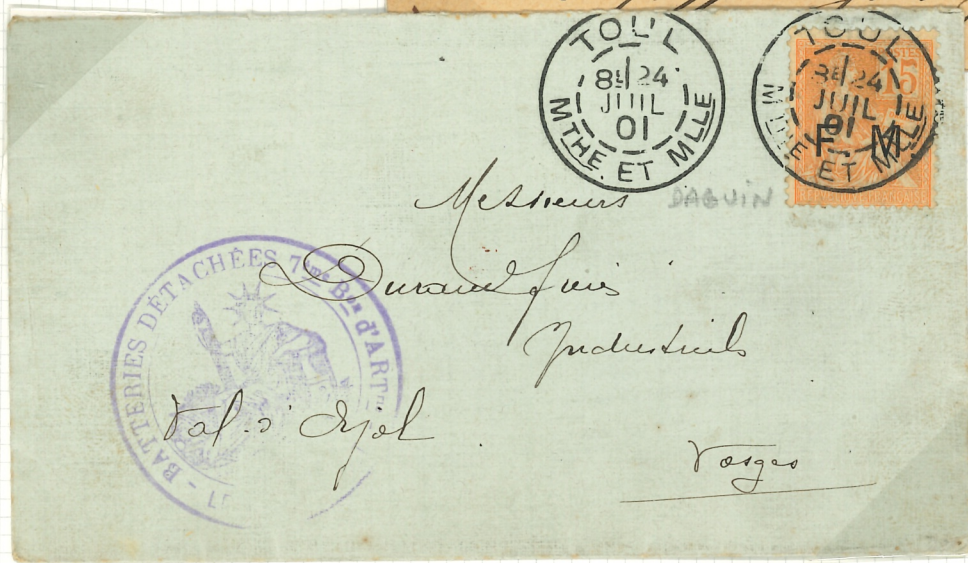 TOUL
8E 24
JUIL
01
MTHE. ET MLLE
TOUL
8E 24
JUIL
01
MTHE ET MLLE
15
POSTES
F M
DAGUIN
Messieurs
Durand frères
Industriels
Val d'Ajol
Vosges
BATTERIES DÉTACHÉES 7ème Bon d'ARTrie